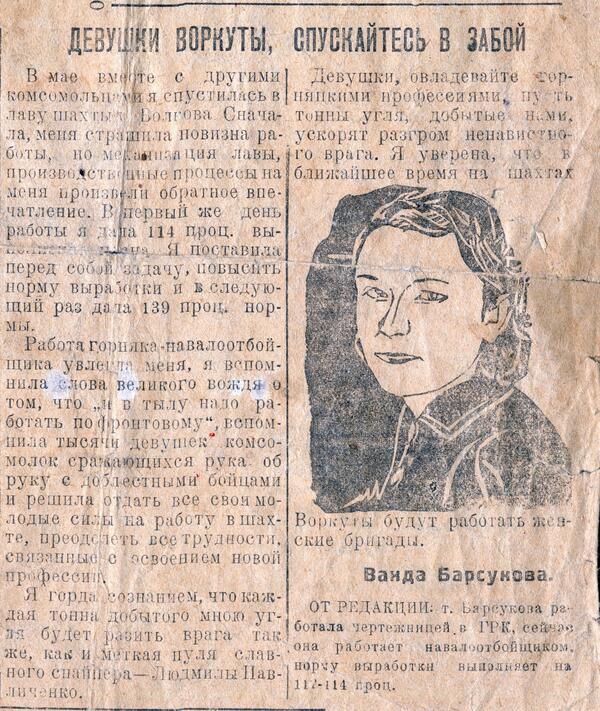 ДЕВУШКИ ВОРКУТЫ, СПУСКАЙТЕСЬ В ЗАБОЙ
В мае вместе с другими
комсомольцами я спустилась в
лаву шахты т. Волгова Снача-
ла, меня страшила новизна ра-
боты, но механизация лавы,
производственные процессы на
меня произвели обратное впе-
чатление. В первый же день
работы я дала 114 проц. вы-
полнения плана. Я поставила
перед собой задачу, повысить
норму выработки и в следую-
щий раз дала 139 проц. нор-
мы.
Работа горняка-навалоотбой-
щика увлекла меня, я вспом-
нила слова великого вождя о
том, что „и в тылу надо ра-
ботать пофронтовому“, вспом-
нила тысячи девушек комсо-
молок сражающихся рука об
руку с доблестными бойцами
и решила отдать все свои мо-
лодые силы на работу в шах-
те, преодолеть все трудности,
связанные с освоением новой
профессии.
Я горда сознанием, что каж-
дая тонна добытого мною уг-
ля будет разить врага так
же, как и меткая пуля слав-
ного снайпера—Людмилы Пав-
личенко.
Девушки, овладевайте гор-
няцкими профессиями, пусть
тонны угля, добытые нами,
ускорят разгром ненавистно-
го врага. Я уверена, что в
ближайшее время на шахтах
Воркуты будут работать жен-
ские бригады.
Ванда Барсукова.
ОТ РЕДАКЦИИ: т. Барсукова ра-
ботала чертежницей в ГРК, сейчас
она работает навалоотбойщиком,
норму выработки выполняет на
112-114 проц.